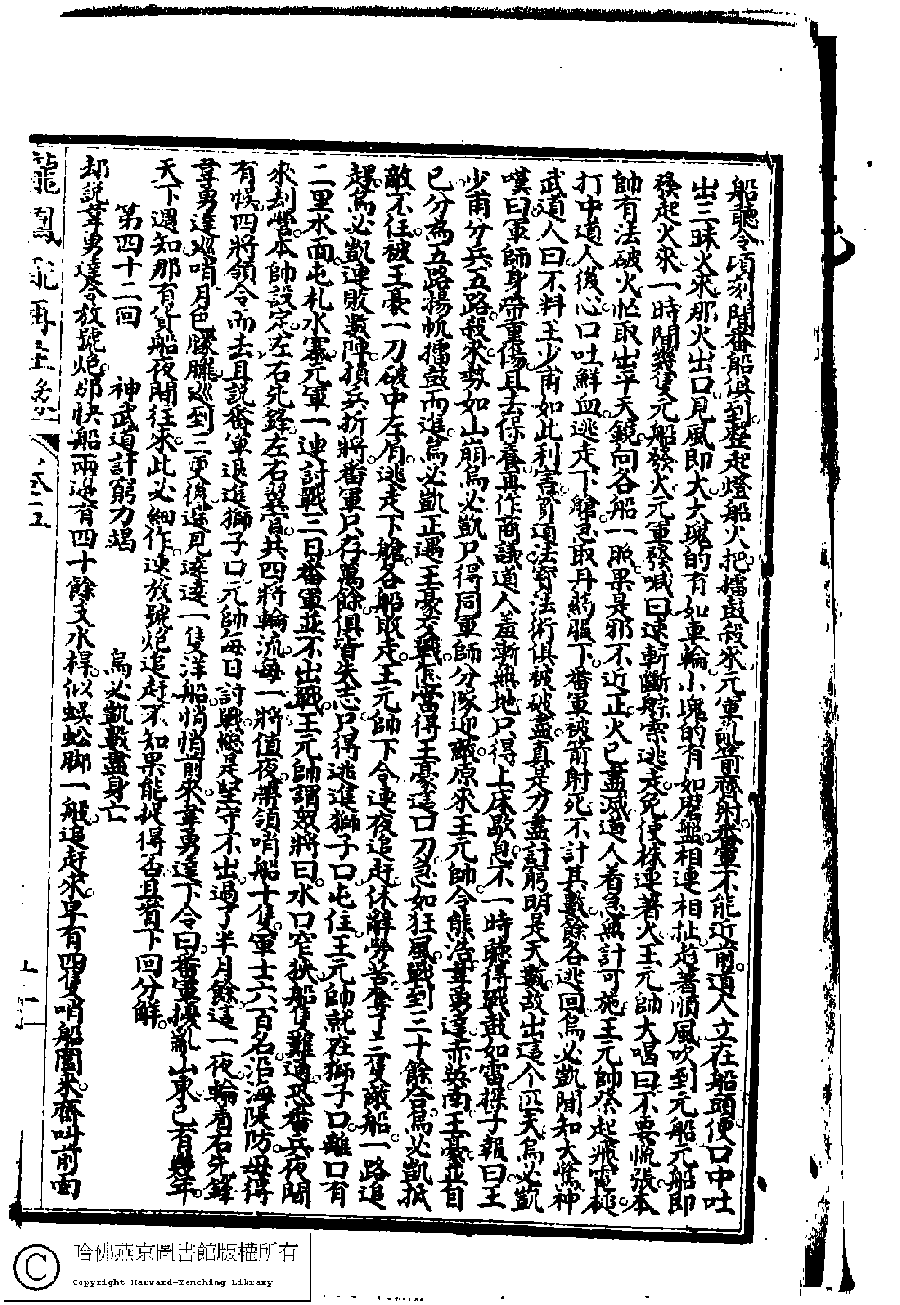 船聽令頃刻間番船俱到整起燈船火把擂鼓殺來元軍亂箭齊射番軍不能近前道人立在船頭便口中吐
出三昧火來那火出口見風即大大塊的有如車輪小塊的有如磨盤相連相扯趁著順風吹到元船元船即
發起火來一時間幾隻元船發火元軍發喊曰速斬斷船索逃走免使株連著火王元帥大喝曰不要慌張本
帥有法破火忙取出平天鏡向各船一照果是邪不近正火已盡滅道人着急無計可施王元帥祭起飛電槌
打中道人後心口吐鮮血逃走下艙急取丹葯服下番軍被箭射死不計其數餘各逃回烏必凱聞知大驚神
武道人曰不料王少甫如此利害計道法寄法術俱被破盡真是力盡計窮明是天數故出這个匹夫烏必凱
嘆曰軍師身帶重傷且去保養再作商議道人羞慚無地只得上床歇息不一時聽得戰鼓如雷探子報曰王
少甫分兵五路殺來勢如山崩烏必凱只得同軍師分隊迎敵原來王元帥令熊浩韋勇達赤英南王豪並自
己分為五路揚帆擂鼓而進烏必凱正遇王豪交戰怎當得王豪這口刀急如狂風戰到三十餘合烏必凱抵
敵不住被王豪一刀破中左肩逃走下艙各船敗走王元帥下令連夜追赶休辭勞苦奪了二隻敵船一路追
趕烏必凱連敗數陣損兵折將番軍只存萬餘俱皆失志只得逃進獅子口屯住王元帥就在獅子口離口有
二里水面屯札水寨元軍一連討戰三日番軍並不出戰王元帥謂眾將曰水口窄狹船隻難過恐番兵夜間
來刦營本帥設定左右先鋒左右翼官共四將輪流每一將值夜帶領哨船十隻軍士六百名沿海隄防毋得
有悞四將領令而去且說番軍退進獅子口元帥每日討戰總是堅守不出過了半月餘這一夜輪着右先鋒
韋勇達巡哨月色朦朧巡到三更後遠見遠遠一隻洋船悄悄前來韋勇達下令曰番軍擾亂山東已有幾年
天下週知那有貨船夜間往來此必細作速放號炮追赶不知果能捉得否且看下回分解
第四十二回　神武道計窮力竭　烏必凱數盡身亡
却說韋勇達令放號炮那快船兩邊有四十餘支水槳似蜈蚣脚一般追赶來早有四隻哨船圍來齊叫前面
龍鳳配再生緣
卷二五
哈佛燕京圖書館版權所有
Copyright Harvard-Yenching Library